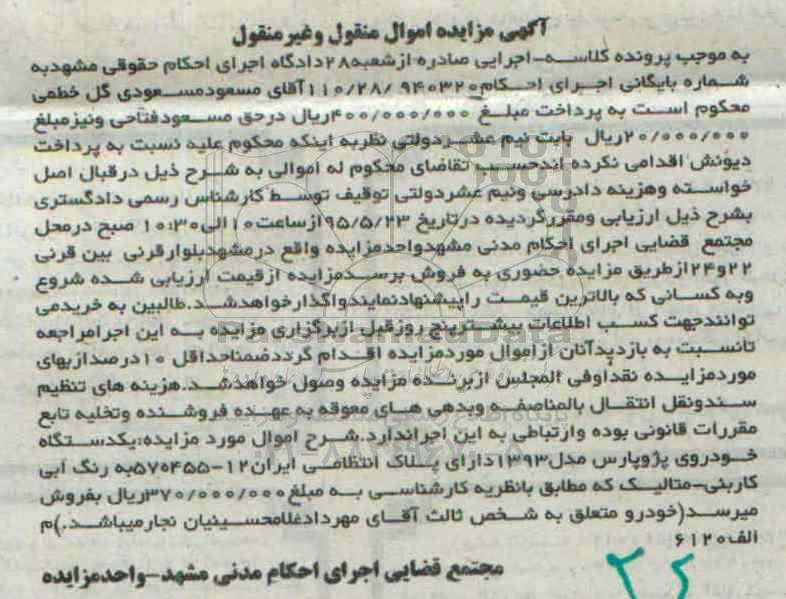 آگهی مزایده اموال منقول وغیرمنقول
به موجب پرونده کلاسه-اجرایی صادره ازشعبه۲۸دادگاه اجرای احکام حقوقی مشهدبه
شماره بایگانی اجرای احکام۹۴۰۳۲۰ /۱۱۰/۲۸آقای مسعودمسعودی گل خطمی
محکوم است به پرداخت مبلغ ۴۰۰/۰۰۰/۰۰۰ریال درحق مسعودفتاحی ونیزمبلغ
۲۰/۰۰۰/۰۰۰ریال بابت نیم عشردولتی نظربه اینکه محکوم علیه نسبت به پرداخت
دیونش اقدامی نکرده اندحسب تقاضای محکوم له اموالی به شرح ذیل درقبال اصل
خواسته وهزینه دادرسی ونیم عشردولتی توقیف توسط کارشناس رسمی دادگستری
بشرح ذیل ارزیابی ومقررگردیده درتاریخ ۹۵/۵/۲۳ازساعت۱۰الی۱۰:۳۰ صبح درمحل
مجتمع قضایی اجرای احکام مدنی مشهدواحدمزایده واقع درمشهدبلوارقرنی بین قرنی
۲۲و۲۴ازطریق مزایده حضوری به فروش برسدمزایده ازقیمت ارزیابی شده شروع
وبه کسانی که بالاترین قیمت راپیشنهادنمایندواگذارخواهدشد.طالبین به خریدمی
توانندجهت کسب اطلاعات بیشترپنج روزقبل ازبرگزاری مزایده به این اجرامراجعه
تانسبت به بازدیدآنان ازاموال موردمزایده اقدام گرددضمناحداقل ۱۰درصدازبهای
موردمزایده نقداوفی المجلس ازبرنده مزایده وصول خواهدشد.هزینه های تنظیم
سندونقل انتقال بالمناصفه وبدهی های معوقه به عهده فروشنده وتخلیه تابع
مقررات قانونی بوده وارتباطی به این اجراندارد.شرح اموال مورد مزایده:یکدستگاه
خودروی پژوپارس مدل۱۳۹۳دارای پلاک انتظامی ایران۱۲-۵۷۰۴۵۵به رنگ آبی
کاربنی-متالیک که مطابق بانظریه کارشناسی به مبلغ۳۷۰/۰۰۰/۰۰۰ریال بفروش
میرسد(خودرو متعلق به شخص ثالث آقای مهردادغلامحسینیان نجارمیباشد.)م
الف۶۱۲۰
مجتمع قضایی اجرای احکام مدنی مشهد-واحدمزایده